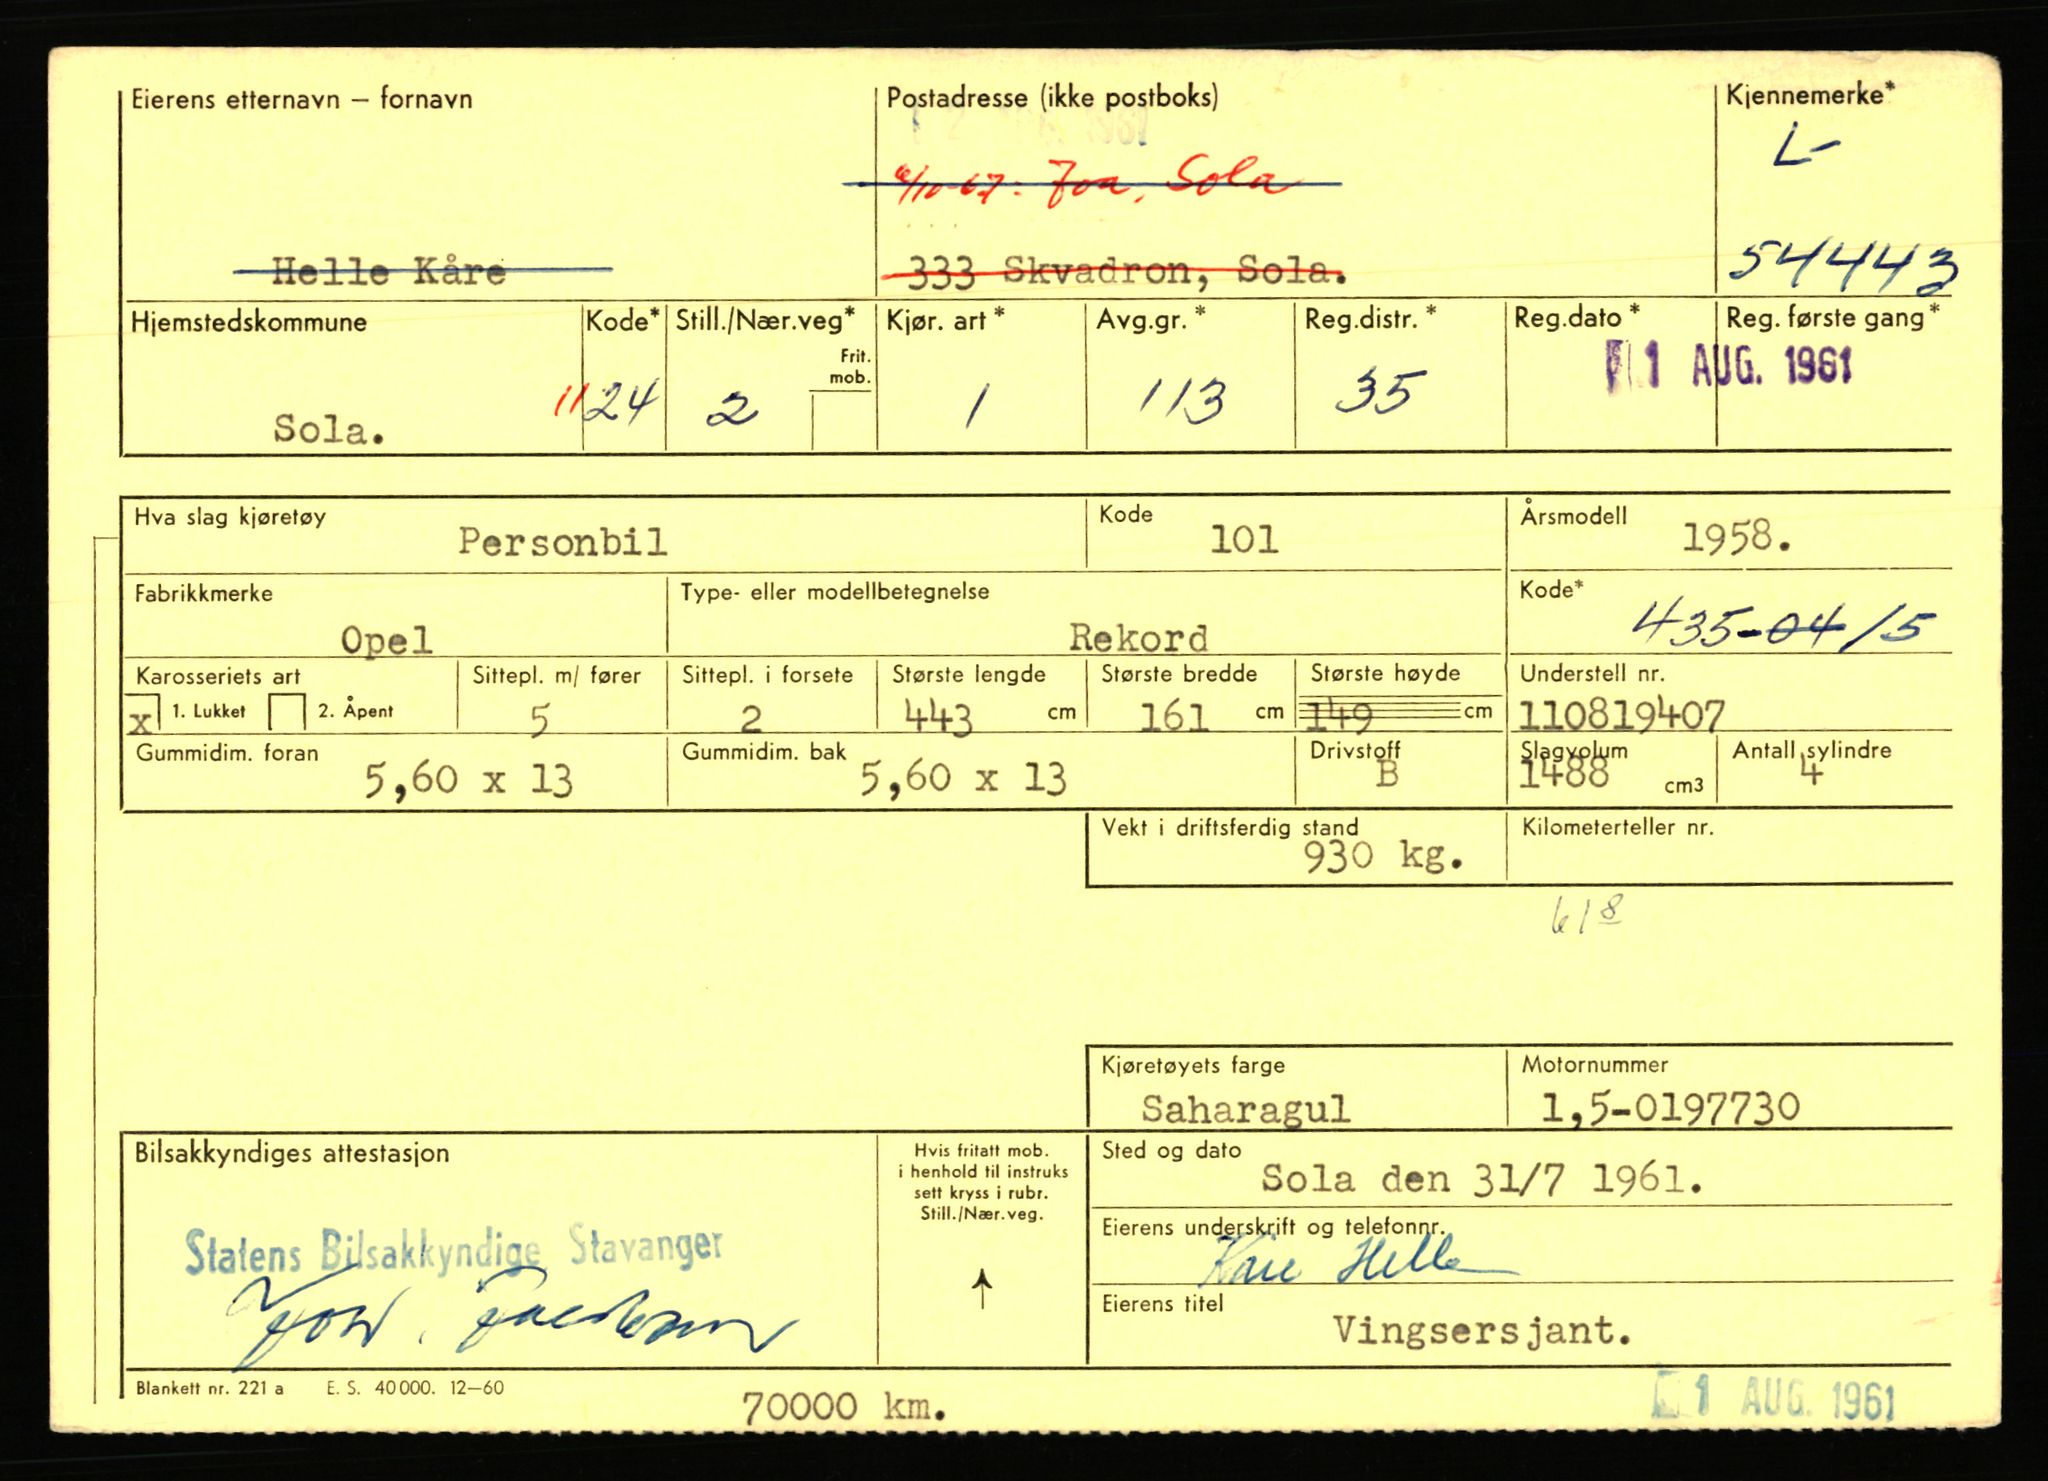 Eierens etternavn – fornavn
Postadresse (ikke postboks)
Kjennemerke*
L-
6/10-67: Joa, Sola
Helle Kåre
333 Skvadron, Sola.
54443
Hjemstedskommune
Kode*
Still./Nær.veg*
Frit. mob.
Kjør. art *
Avg.gr. *
Reg.distr. *
Reg.dato *
Reg. første gang*
Sola.
1124
2
1
113
35
1 AUG. 1961
Hva slag kjøretøy
Personbil
Kode
101
Årsmodell
1958.
Fabrikkmerke
Opel
Type- eller modellbetegnelse
Rekord
Kode*
435-04/5
Karosseriets art
x 1. Lukket 2. Åpent
Sittepl. m/ fører
5
Sittepl. i forsete
2
Største lengde
443 cm
Største bredde
161 cm
Største høyde
149 cm
Understell nr.
110819407
Gummidim. foran
5,60 x 13
Gummidim. bak
5,60 x 13
Drivstoff
B
Slagvolum
1488 cm3
Antall sylindre
4
Vekt i driftsferdig stand
930 kg.
Kilometerteller nr.
618
Kjøretøyets farge
Saharagul
Motornummer
1,5-0197730
Bilsakkyndiges attestasjon
Statens Bilsakkyndige Stavanger
Hvis fritatt mob.
i henhold til instruks
sett kryss i rubr.
Still./Nær.veg.
Sted og dato
Sola den 31/7 1961.
Eierens underskrift og telefonnr.
Kåre Helle
Eierens titel
Vingsersjant.
Blankett nr. 221 a E. S. 40000. 12–60
70000 km.
1 AUG. 1961